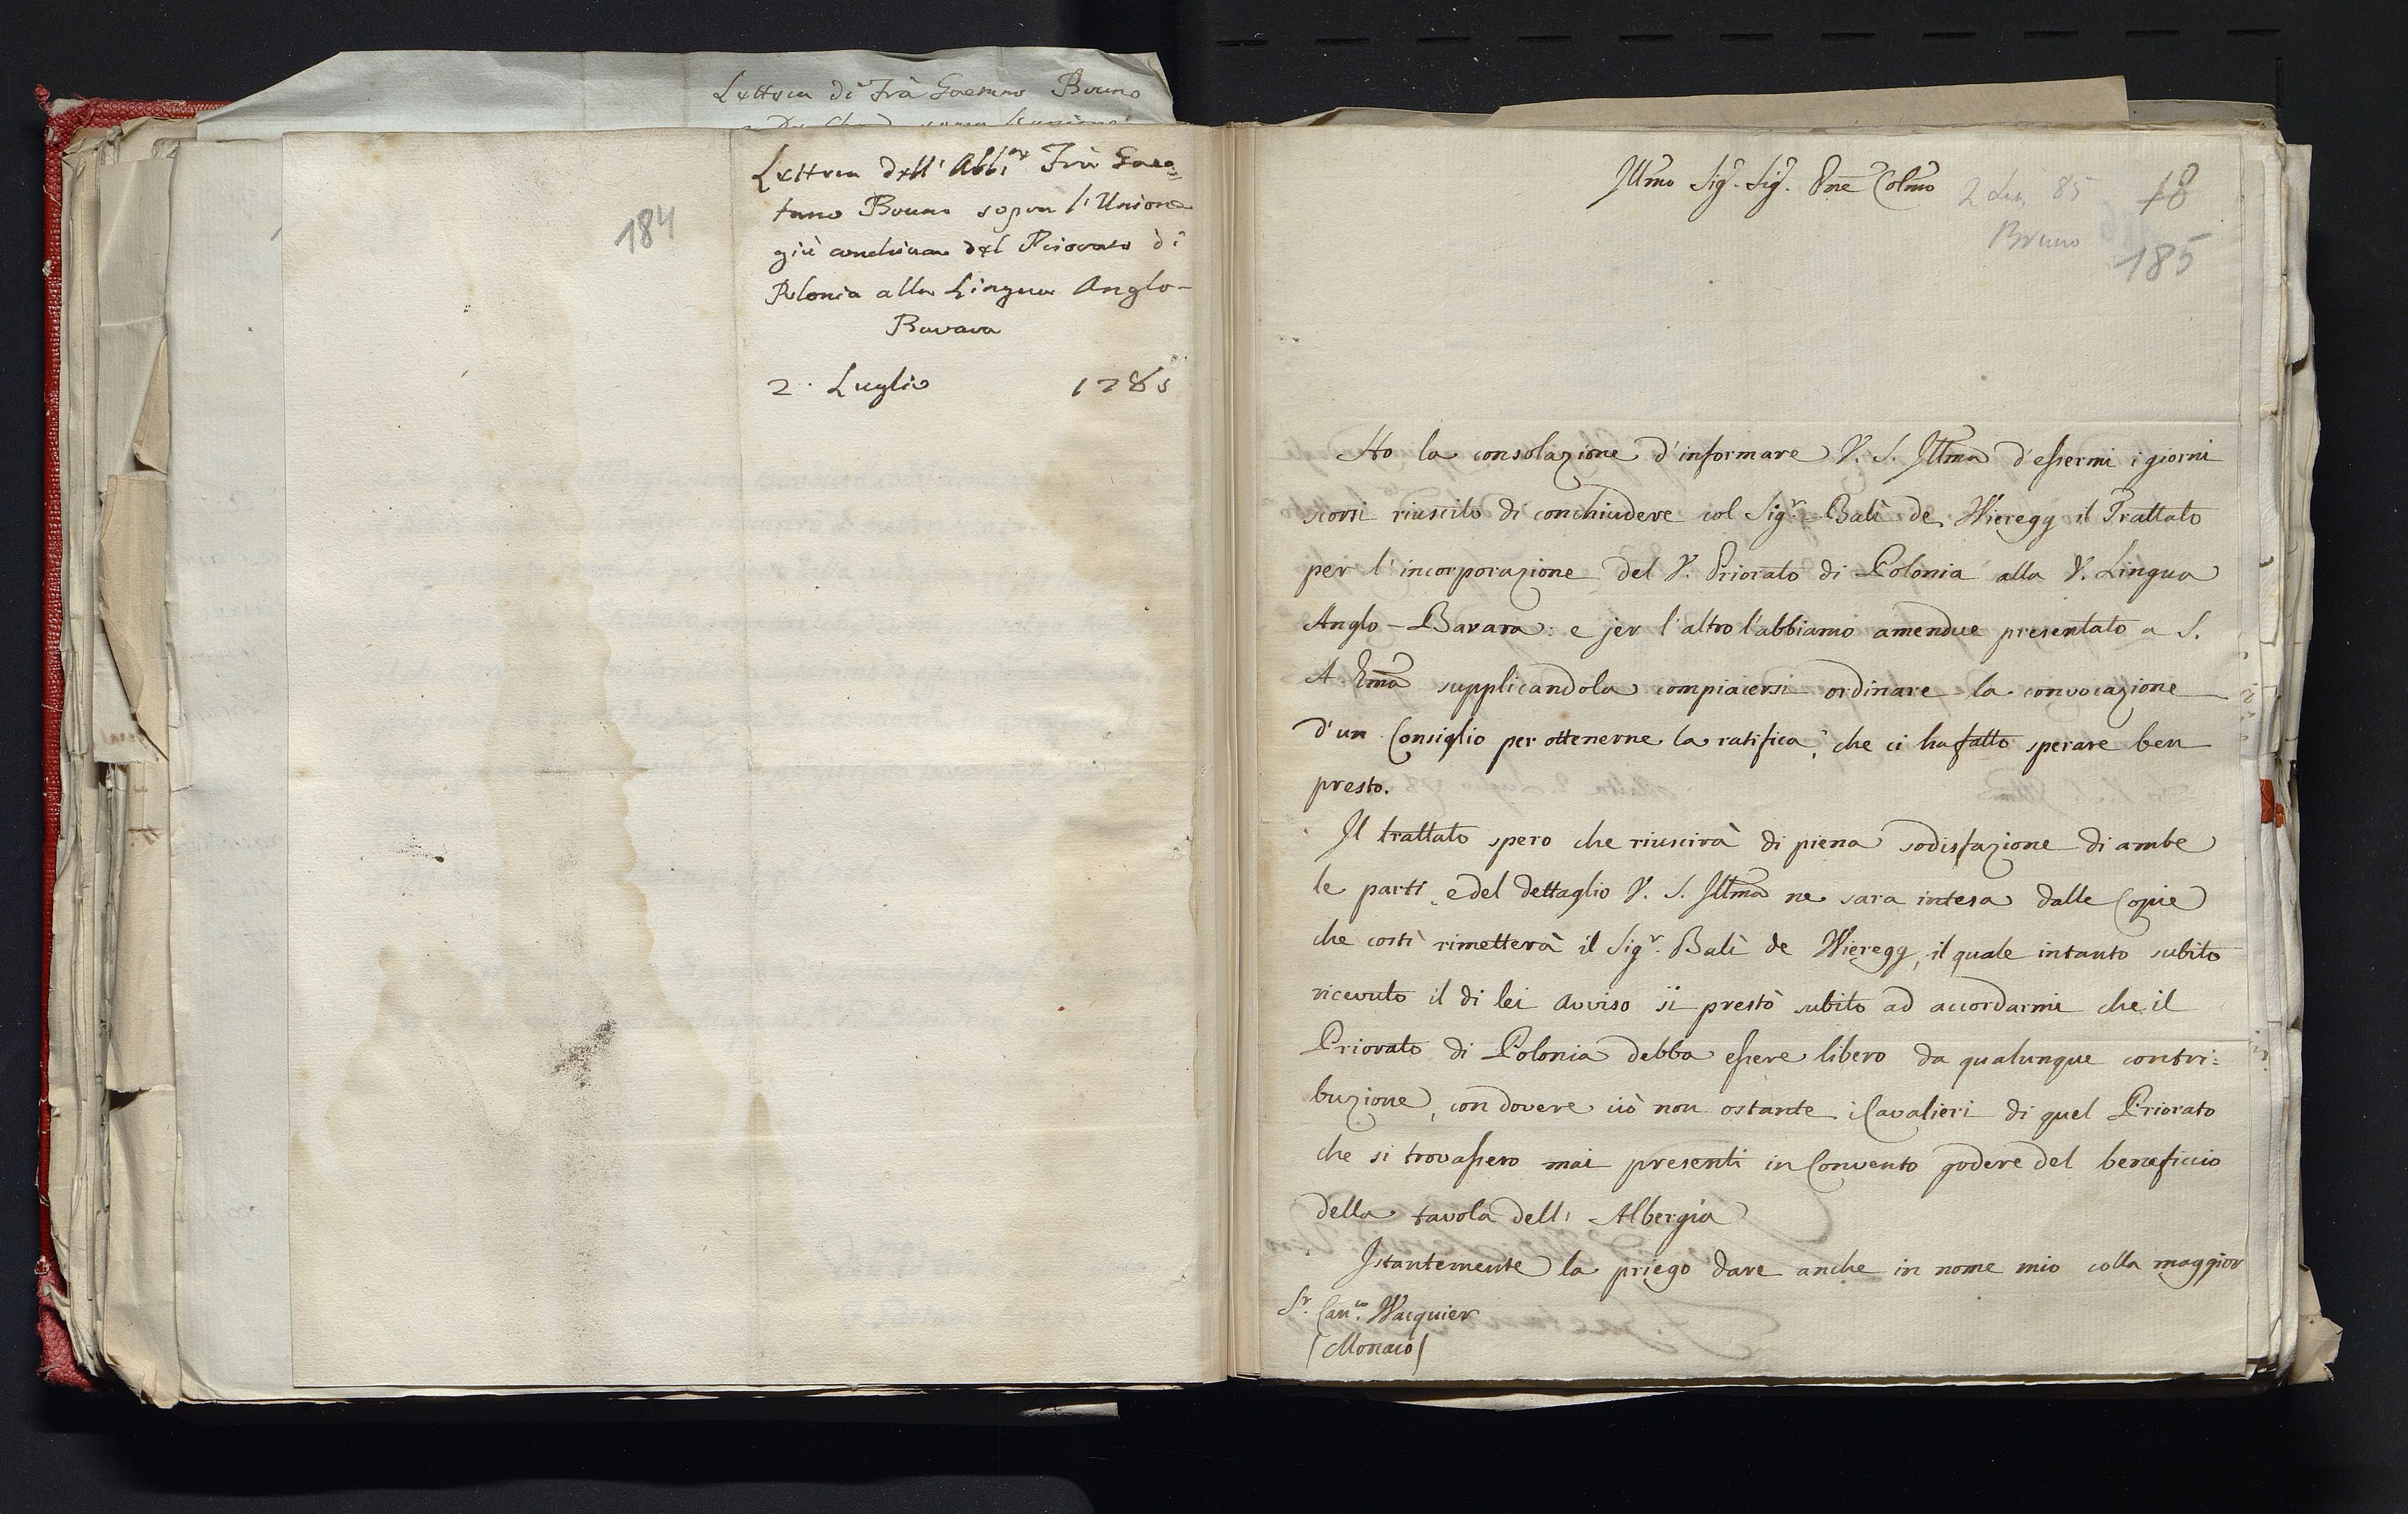 Lettera di Frà Gaetano Bruno
Lettera dell' Abb:e Frà Gae=
tano Bruno sopra l'Unione
già conchiusa del Priorato di
Polonia alla Lingua Anglo-
Bavara
2. Luglio 1785
184
Illmo Sigr. Sigr. Pne Colmo
2 Lug 85
Bruno
18
185
Ho la consolazione d'informare V. S. Illma d'essermi i giorni
scorsi riuscito di conchiudere col Sigr. Balì de Vieregg il Trattato
per l'incorporazione del V. Priorato di Polonia alla V. Lingua
Anglo-Bavara: e jer l'altro l'abbiamo amendue presentato a S.
A. Ema supplicandola compiacersi ordinare la convocazione
d'un Consiglio per ottenerne la ratifica, che ci ha fatto sperare ben
presto.
Il trattato spero che riuscirà di piena sodisfazione di ambe
le parti, e del dettaglio V. S. Illma ne sara intesa dalle Copie
che costì rimetterà il Sigr. Balì de Vieregg, il quale intanto subito
ricevuto il di lei avviso si prestò subito ad accordarmi che il
Priorato di Polonia debba essere libero da qualunque contri=
buzione, con dovere ciò non ostante i Cavalieri di quel Priorato
che si trovassero mai presenti in Convento godere del beneficio
della tavola dell' Albergia
Istantemente la priego dare anche in nome mio colla maggior
Sr. Canco. Vacquier
(Monaco)